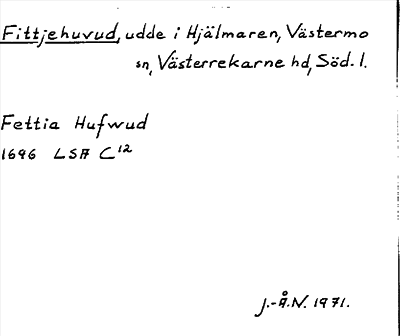 Fittjehuvud, udde i Hjälmaren, Västermo
sn, Västerrekarne hd, Söd. l.
Fettia Hufwud
1696 LSA C12
J.-Å.N. 1971.